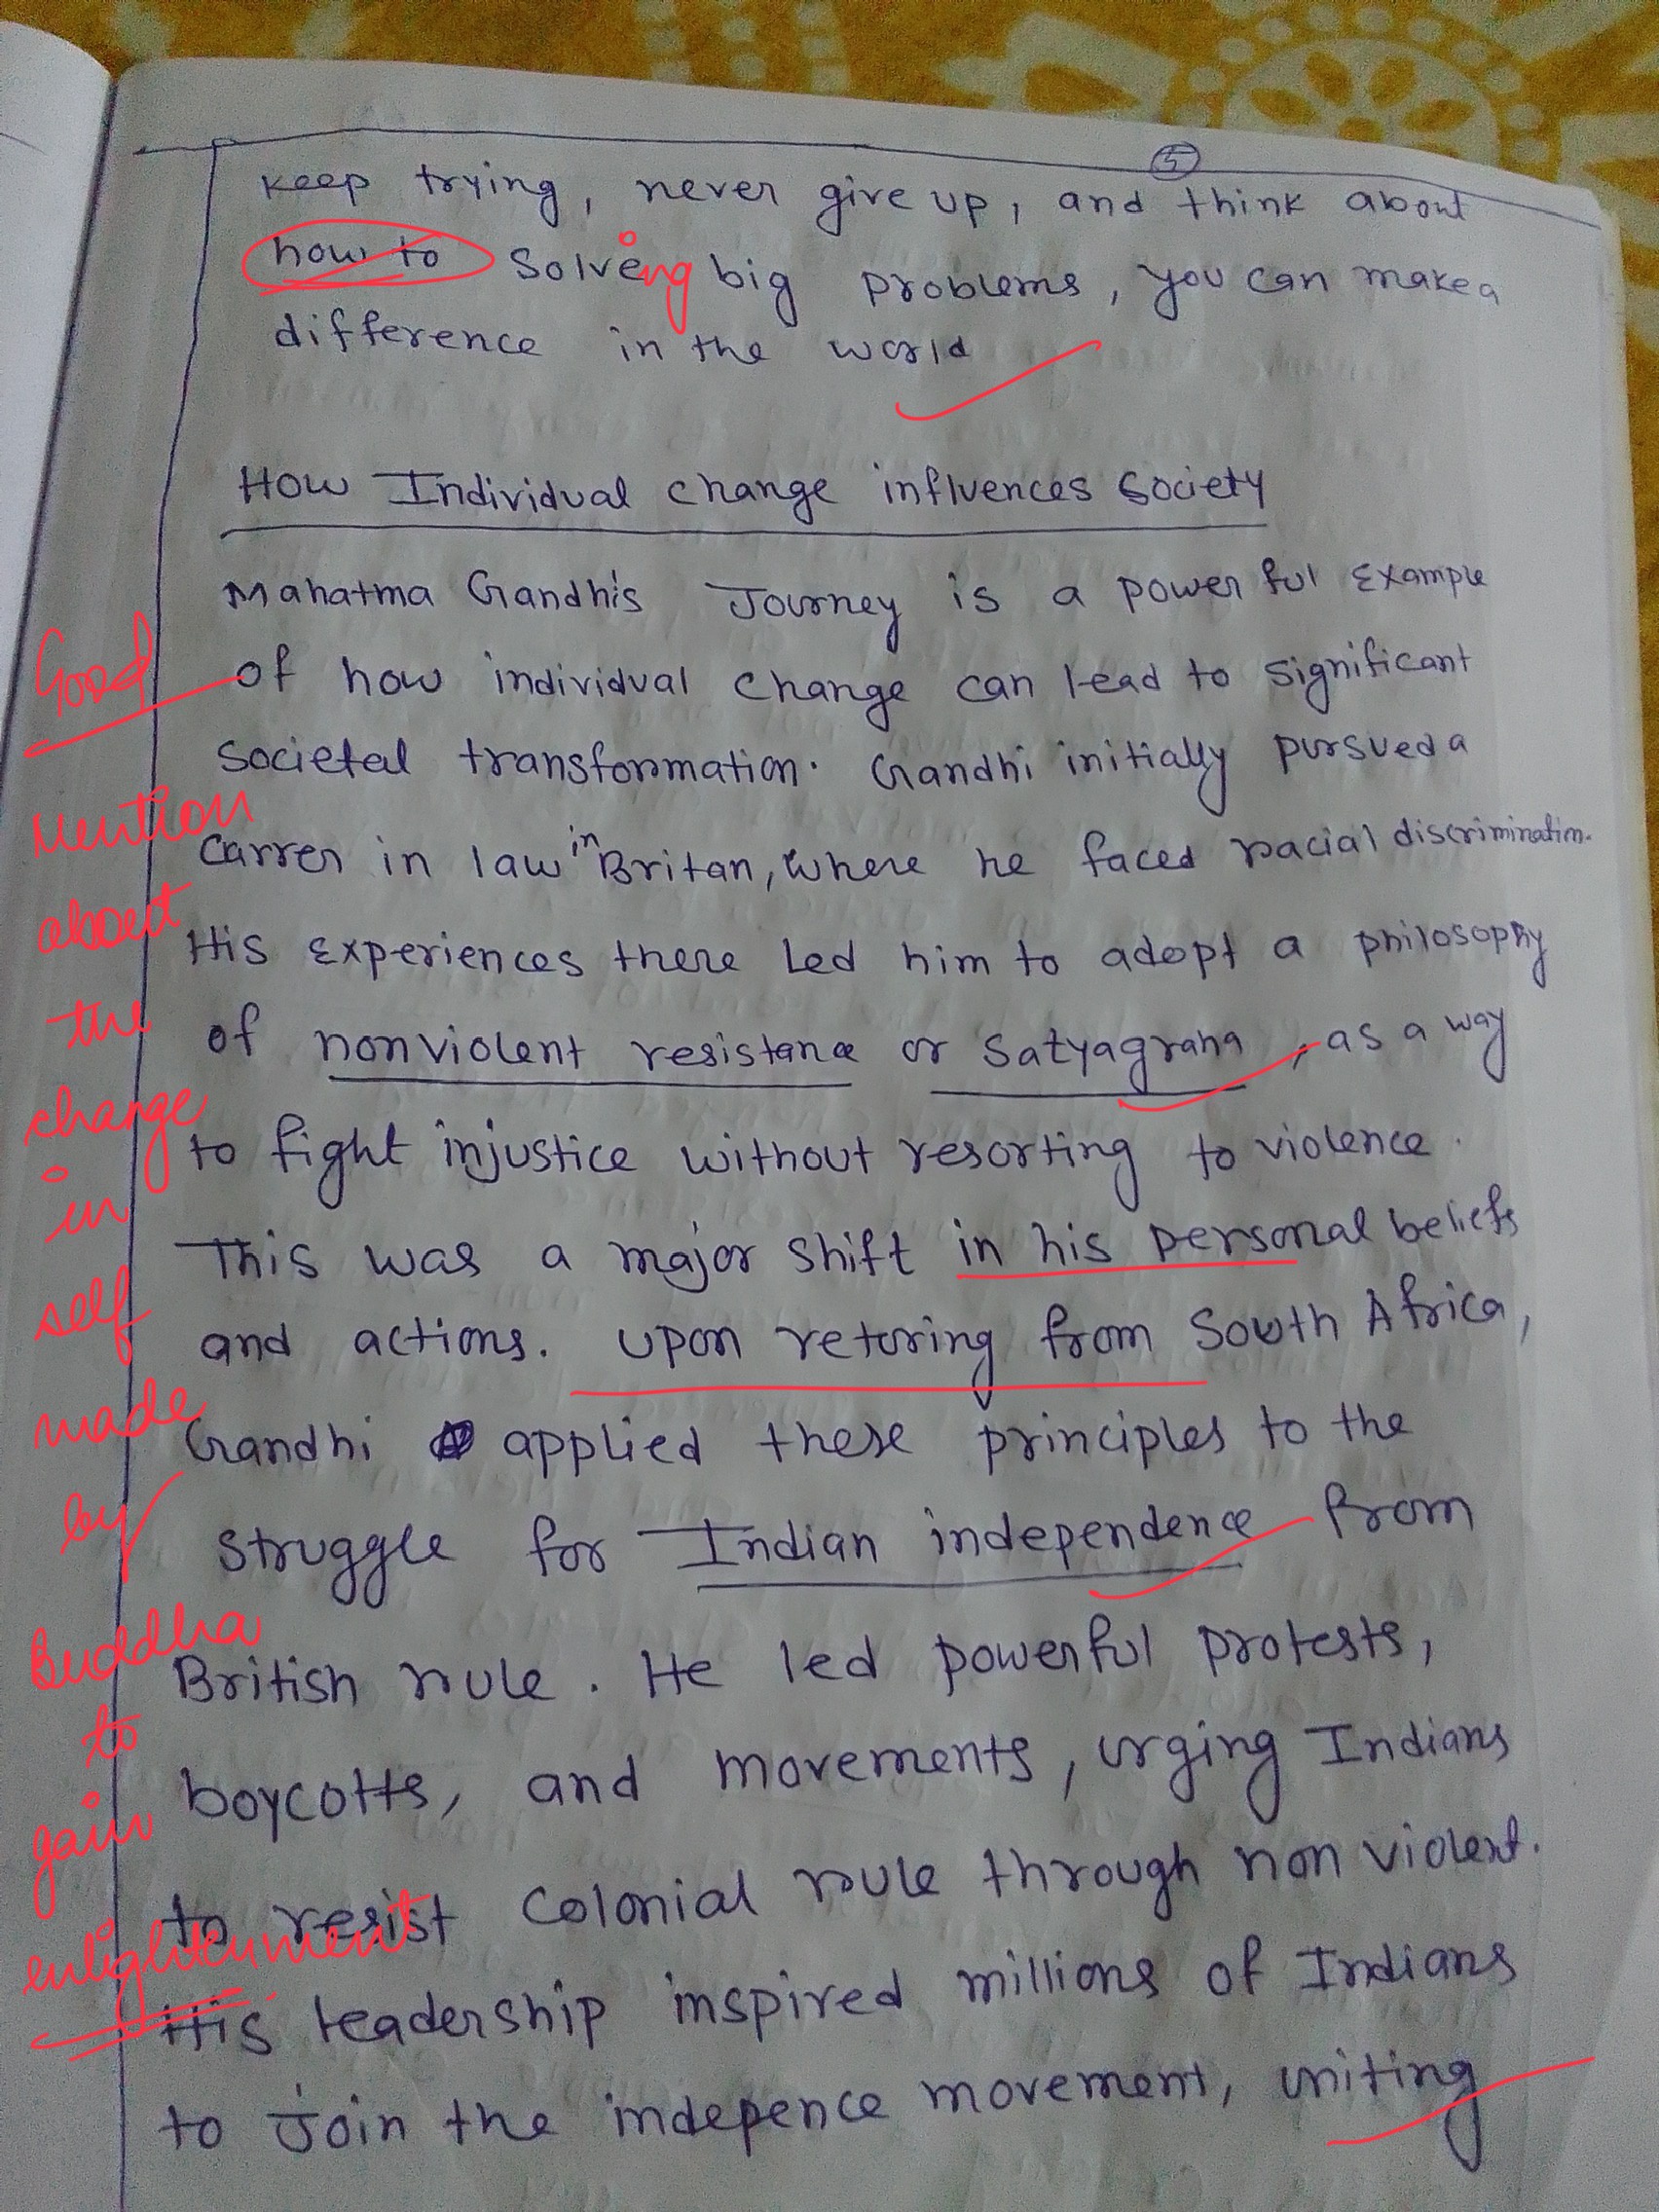 5
keep trying, never give up, and think about
how to solveing big problems, you can make a
difference in the world
How Individual change influences Society
Mahatma Gandhi's Journey is a powerful Example
of how individual change can lead to significant
Societal transformation. Gandhi initially pursued a
Carrer in law in Britan, where he faced racial discrimination.
His Experiences there Led him to adopt a philosophy
of nonviolent resistance or Satyagraha, as a way
to fight injustice without resorting to violence.
This was a major shift in his personal beliefs
and actions. Upon retoring from South Africa,
Gandhi applied these principles to the
struggle for Indian independence from
British rule. He led powerful protests,
boycotts, and movements, urging Indians
to resist Colonial rule through non violent.
His leadership inspired millions of Indians
to Join the indepence movement, uniting
Good
Mention
about
the
change
in
self
made
by
Buddha
to
gain
enlightenment